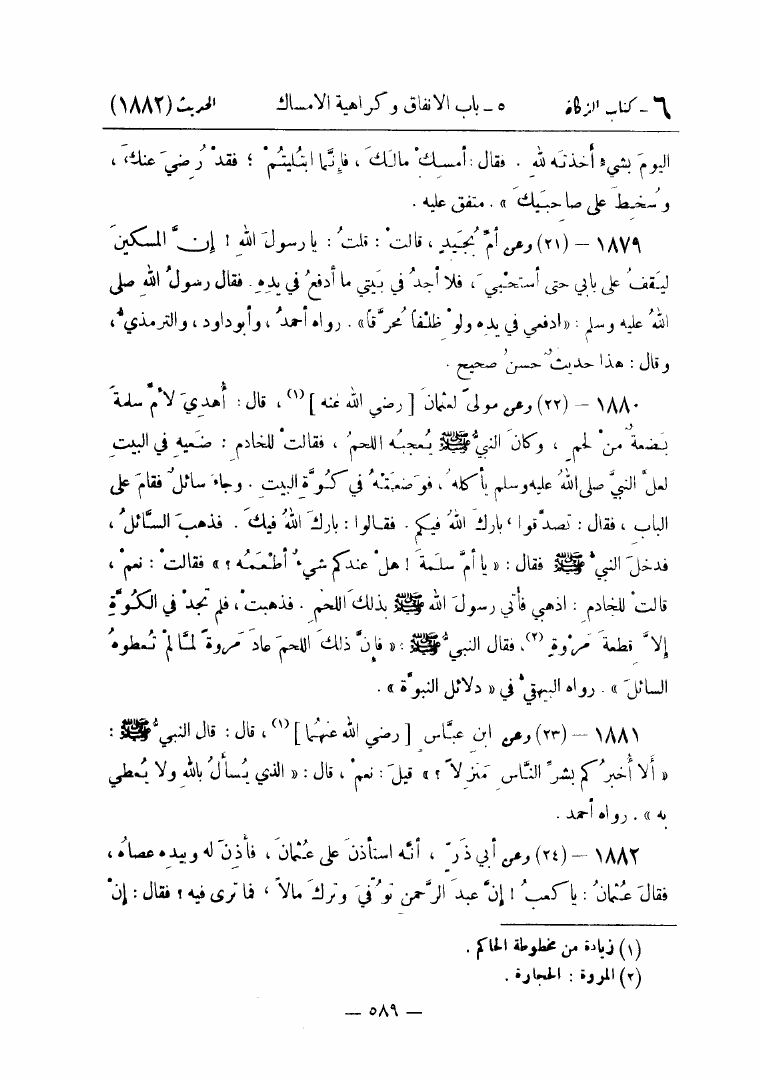 ٦ – كتاب الزكاة ٥ – باب الانفاق وكراهية الامساك الحديث (١٨٨٢)
اليومَ بشيءٍ أخذتَه للهِ . فقال : أمسِكْ مالَكَ ، فإنَّما ابتُليتُمْ ؛ فقدْ رُضيَ عنكَ ،
وسُخِطَ على صاحبَيكَ » . متفق عليه .
١٨٧٩ – (٢١) وعن أمِّ بُجَيدٍ ، قالتْ : قلتُ : يا رسولَ اللهِ ! إنَّ المسكينَ
ليَقفُ على بابي حتى أستحْييَ ، فلا أجدُ في بَيتي ما أدفعُ في يدِهِ . فقال رسولُ اللهِ صلى
اللهُ عليه وسلم : «ادفعي في يدِه ولوْ ظِلْفاً مُحرَّقاً» . رواه أحمدُ ، وأبوداود ، والترمذيُّ ،
وقال : هذا حديثٌ حسنٌ صحيح .
١٨٨٠ – (٢٢) وعن مولىً لعثمانَ [ رضي الله عنه ](١) ، قال : أُهديَ لأمِّ سلمةَ
بَضعةٌ منْ لحمٍ ، وكانَ النبيُّ ﷺ يُعجبُه اللحمُ ، فقالتْ للخادمِ : ضَعيهِ في البيتِ
لعلَّ النبيَّ صلى اللهُ عليه وسلم يأكلُه ، فوَضعَتْهُ في كُوَّةِ البيتِ . وجاءَ سائلٌ فقامَ على
البابِ ، فقال : تصدَّقوا ، باركَ اللهُ فيكم . فقالوا : باركَ اللهُ فيكَ . فذهبَ السَّائلُ ،
فدخلَ النبيُّ ﷺ فقال : « يا أمَّ سلَمةَ ! هلْ عندكم شيءٌ أطْعَمُه ؟ » فقالتْ : نعمْ ،
قالتْ للخادمِ : اذهبي فأْتي رسولَ اللهِ ﷺ بذلكَ اللحمِ . فذهبتْ ، فلم تجدْ في الكُوَّةِ
إلاَّ قِطعةَ مَرْوةٍ (٢) ، فقال النبيُّ ﷺ : « فإنَّ ذلكَ اللحمَ عادَ مَروةً لمَّا لمْ تُعطوهُ
السائلَ » . رواه البيهقيُّ في « دلائل النبوَّة » .
١٨٨١ – (٢٣) وعن ابنِ عبَّاسٍ [ رضي الله عنهُما ](١) ، قال : قال النبيُّ ﷺ :
« ألا أُخبرُكم بشرِّ النَّاسِ مَنزِلاً ؟ » قيلَ : نعمْ ، قال : « الذي يُسألُ باللهِ ولا يُعطي
به » . رواه أحمد .
١٨٨٢ – (٢٤) وعن أبي ذَرٍّ ، أنَّه استأذنَ على عُثمانَ ، فأذِنَ له وبيدِه عصاهُ ،
فقالَ عُثمانُ : يا كعبُ ! إنَّ عبدَ الرَّحمنِ تُوُفِّيَ وتركَ مالاً ، فما ترى فيه ؟ فقال : إنْ
(١) زيادة من مخطوطة الحاكم .
(٢) المروة : الحجارة .
– ٥٨٩ –